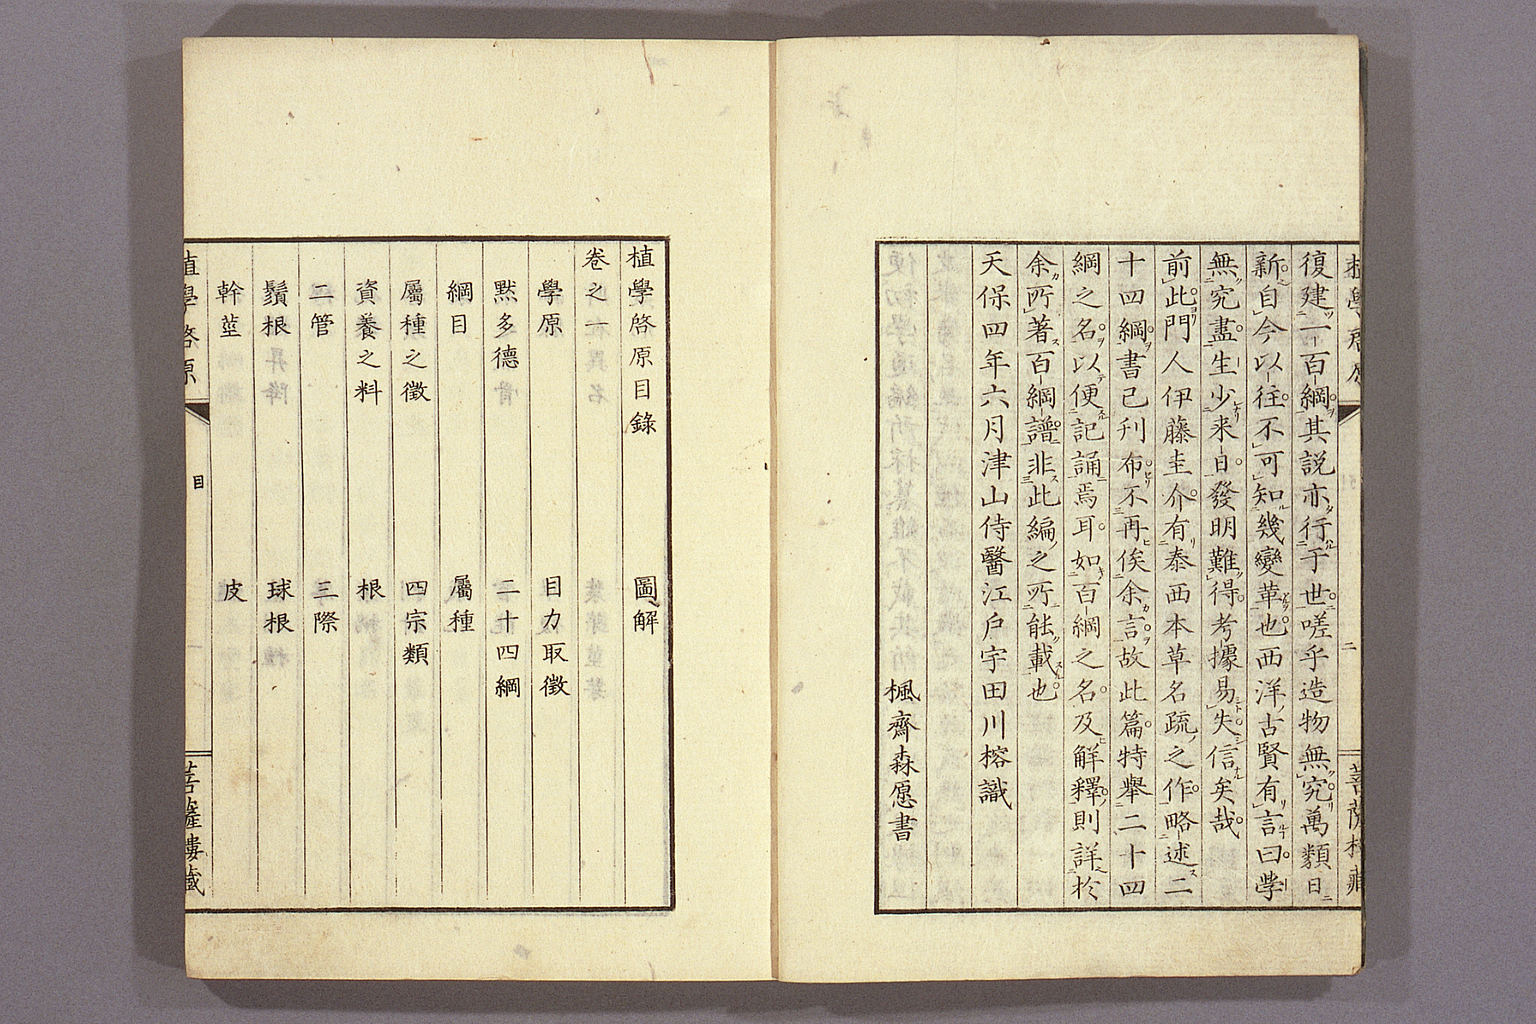 復建一百綱其説亦行于世嗟乎造物無究萬類日
新自今以往不可知幾變革也西洋古賢有言曰學
無究盡生少来日發明難得考據易失信矣哉
前此門人伊藤圭介有泰西本草名疏之作略述二
十四綱書已刊布不再俟余言故此篇特舉二十四
綱之名以便記誦焉耳如百綱之名及解釋則詳於
余所著百綱譜非此編之所能載也
天保四年六月津山侍醫江戶宇田川榕識
楓齋森愿書
植學啓原目錄 圖解
卷之一
學原 目力取徵
黙多德 二十四綱
綱目 屬種
屬種之徵 四宗類
資養之料 根
二管 三際
鬚根 球根
幹莖 皮
植學啓原 目 菩薩樓藏